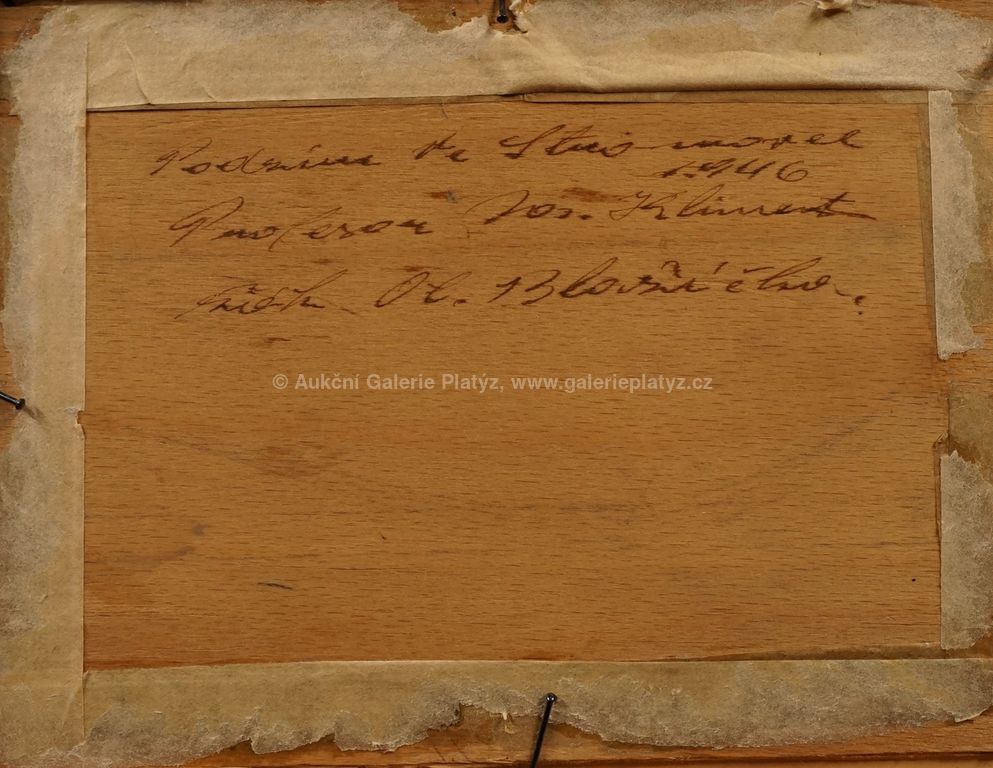 Podzim ve Stromovce
1946
Profesor Jos. Kliment
žák Ol. Blažíčka.
© Aukční Galerie Platýz, www.galerieplatyz.cz